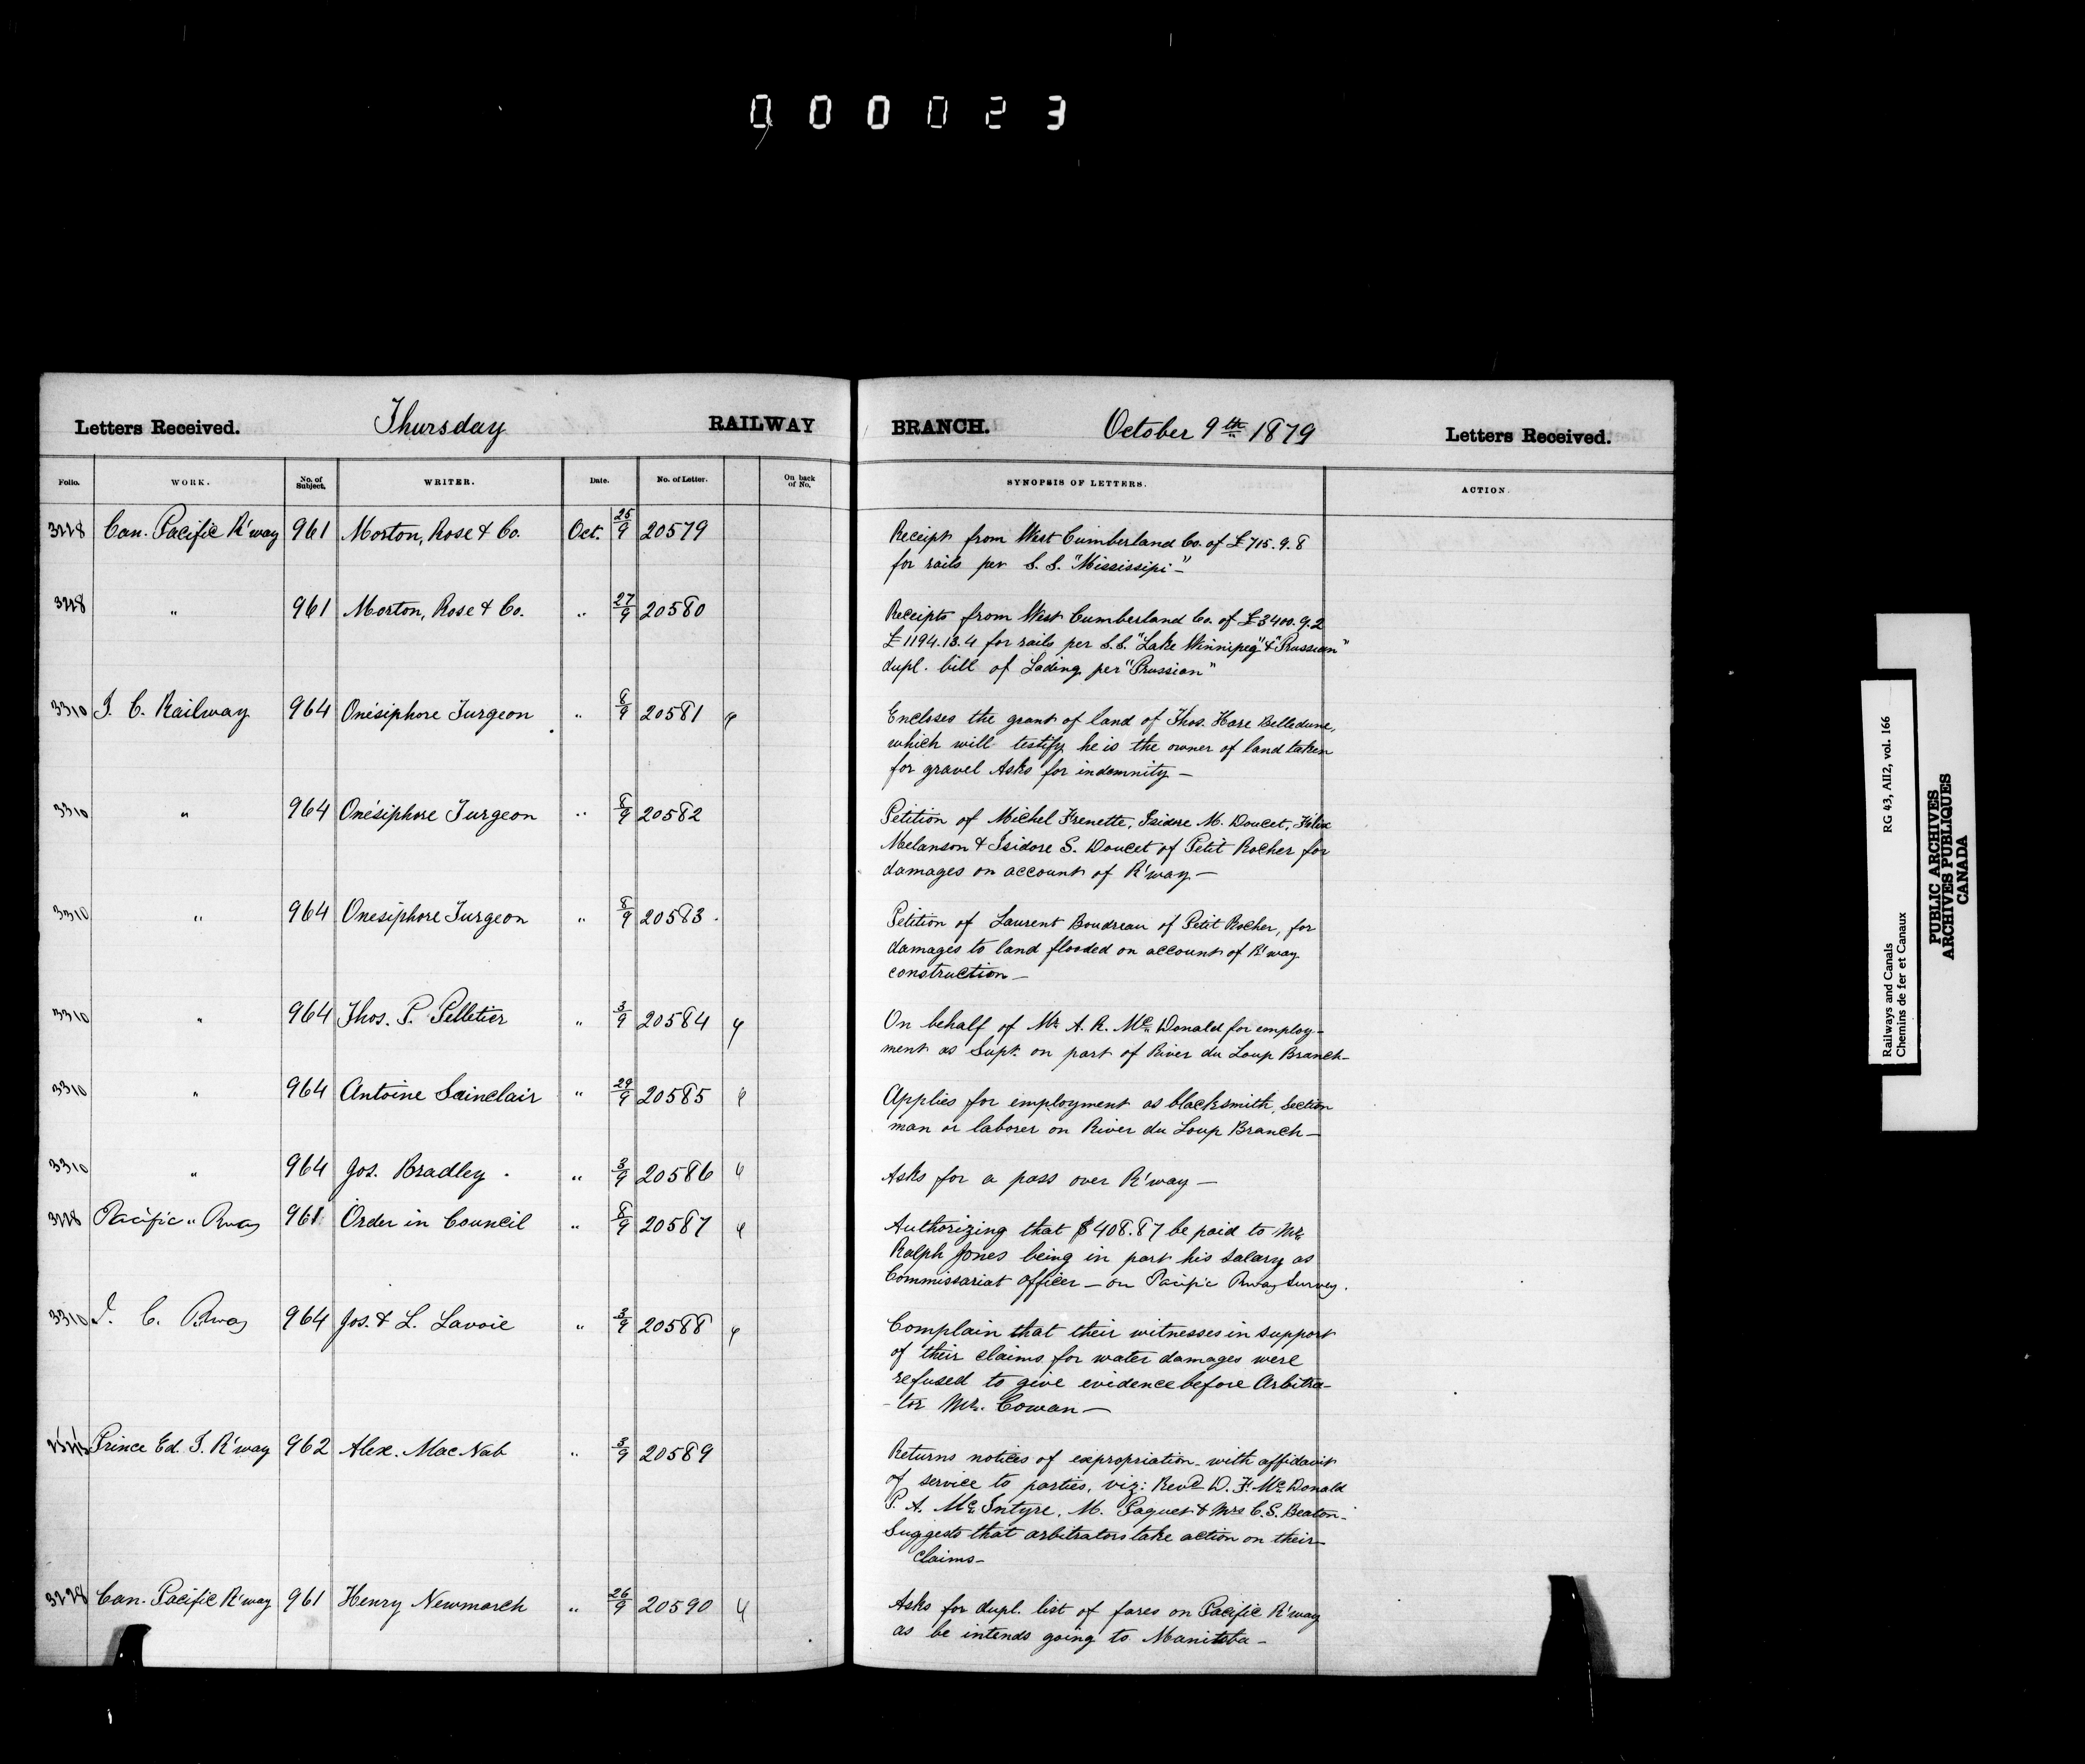 000023
Letters Received. Thursday RAILWAY BRANCH. October 9th 1879 Letters Received.
Folio. WORK. No. of Subject. WRITER. Date. No. of Letter. On back of No. SYNOPSIS OF LETTERS. ACTION.
3228 Can. Pacific R'way 961 Morton, Rose & Co. Oct. 25/9 20579 Receipt from West Cumberland Co. of £715.9.8
for rails per S.S. "Mississipi"–
3228 " 961 Morton, Rose & Co. " 27/9 20580 Receipts from West Cumberland Co. of £3400.9.2
£1194.13.4 for rails per S.S. "Lake Winnipeg" & "Prussian"
dupl. bill of Lading per "Prussian"
3310 I. C. Railway 964 Onésiphore Turgeon " 8/9 20581 Encloses the grant of land of Thos. Hare Belledune,
which will testify he is the owner of land taken
for gravel Asks for indemnity –
3310 " 964 Onésiphore Turgeon " 8/9 20582 Petition of Michel Frenette, Isidore M. Doucet, Felix
Melanson & Isidore S. Doucet of Petit Rocher for
damages on account of R'way –
3310 " 964 Onésiphore Turgeon " 8/9 20583 Petition of Laurent Boudreau of Petit Rocher, for
damages to land flooded on account of R'way
construction –
3310 " 964 Thos. P. Pelletier " 3/9 20584 On behalf of Mr A. R. McDonald for employ-
ment as Supt. on part of River du Loup Branch–
3310 " 964 Antoine Sainclair " 29/9 20585 Applies for employment as blacksmith, Section
man or laborer on River du Loup Branch –
3310 " 964 Jos. Bradley " 3/9 20586 Asks for a pass over R'way –
3228 Pacific " Rway 961 Order in Council " 8/9 20587 Authorizing that $408.87 be paid to Mr.
Ralph Jones being in part his salary as
Commissariat officer – on Pacific Rway Survey.
3310 I. C. Rway 964 Jos. & L. Lavoie " 3/9 20588 Complain that their witnesses in support
of their claims for water damages were
refused to give evidence before Arbitra-
-tor Mr. Cowan –
Prince Ed. I. R'way 962 Alex. MacNab " 3/9 20589 Returns notices of expropriation – with affidavit
of service to parties, viz: Revd D. F. McDonald
P. A. McIntyre, M. Paquet & Mrs C. S. Beaton –
Suggests that arbitrators take action on their
claims –
3228 Can. Pacific R'way 961 Henry Newmarch " 26/9 20590 Asks for dupl. list of fares on Pacific R'way
as he intends going to Manitoba –
Railways and Canals RG 43, AII2, vol. 166
Chemins de fer et Canaux
PUBLIC ARCHIVES
ARCHIVES PUBLIQUES
CANADA